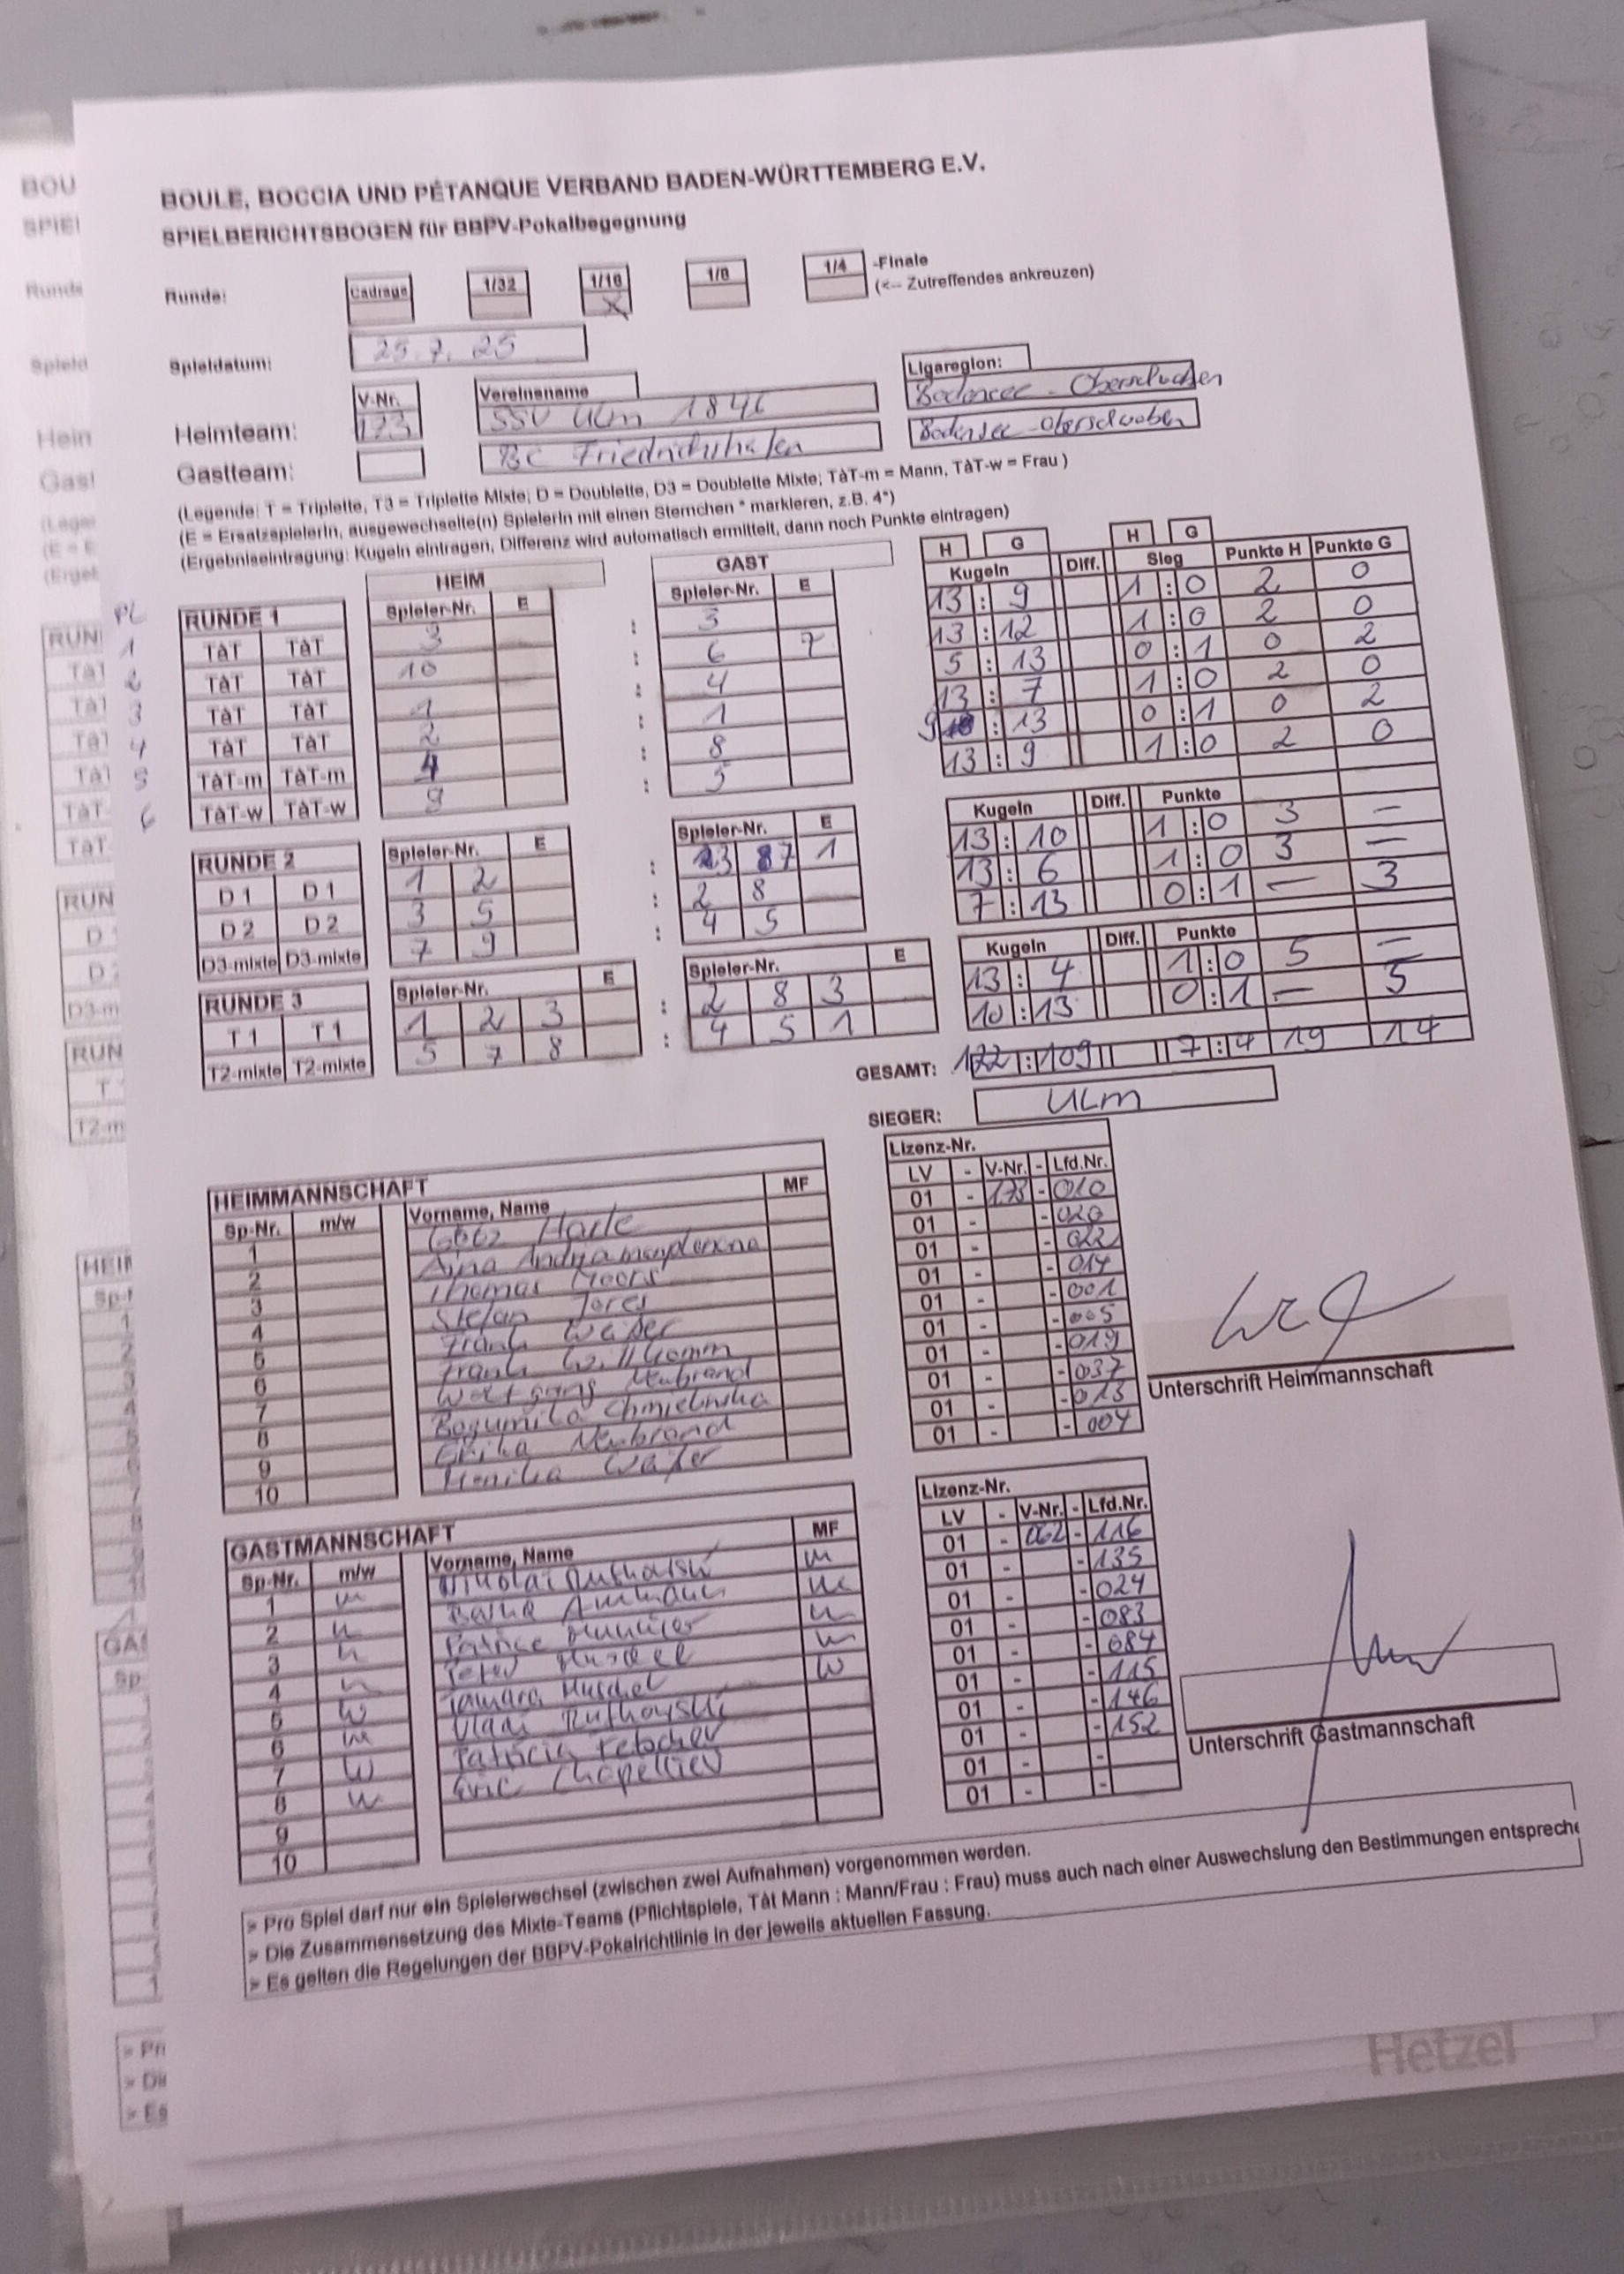 BOULE, BOCCIA UND PÉTANQUE VERBAND BADEN-WÜRTTEMBERG E.V.
SPIELBERICHTSBOGEN für BBPV-Pokalbegegnung
Runde: Cadrage 1/32 1/16 1/8 1/4 -Finale
X (<-- Zutreffendes ankreuzen)
Spieldatum: 25.7.25
V-Nr. Vereinsname Ligaregion:
Heimteam: 173 SSV Ulm 1846 Bodensee-Oberschwaben
Gastteam: BC Friedrichshafen Bodensee-Oberschwaben
(Legende: T = Triplette, T3 = Triplette Mixte; D = Doublette, D3 = Doublette Mixte; TàT-m = Mann, TàT-w = Frau )
(E = ErsatzspielerIn, ausgewechselte(n) SpielerIn mit einen Sternchen * markieren, z.B. 4*)
(Ergebniseintragung: Kugeln eintragen, Differenz wird automatisch ermittelt, dann noch Punkte eintragen)
HEIM GAST H G H G
RUNDE 1 Spieler-Nr. E Spieler-Nr. E Kugeln Diff. Sieg Punkte H Punkte G
PL
1 TàT TàT 3 : 3 13 : 9 1 : 0 2 0
2 TàT TàT 10 : 6 7 13 : 12 1 : 0 2 0
3 TàT TàT 1 : 4 5 : 13 0 : 1 0 2
4 TàT TàT 2 : 1 13 : 7 1 : 0 2 0
5 TàT-m TàT-m 4 : 8 9 : 13 0 : 1 0 2
6 TàT-w TàT-w 9 : 5 13 : 9 1 : 0 2 0
RUNDE 2 Spieler-Nr. E Spieler-Nr. E Kugeln Diff. Punkte
D 1 D 1 1 2 : 3 7 1 13 : 10 1 : 0 3 –
D 2 D 2 3 5 : 2 8 13 : 6 1 : 0 3 –
D3-mixte D3-mixte 7 9 : 4 5 7 : 13 0 : 1 – 3
RUNDE 3 Spieler-Nr. E Spieler-Nr. E Kugeln Diff. Punkte
T 1 T 1 1 2 3 : 2 8 3 13 : 4 1 : 0 5 –
T2-mixte T2-mixte 5 7 8 : 4 5 1 10 : 13 0 : 1 – 5
GESAMT: 122 : 109 7 : 4 19 14
SIEGER: Ulm
HEIMMANNSCHAFT Lizenz-Nr.
Sp-Nr. m/w Vorname, Name MF LV - V-Nr. - Lfd.Nr.
1 Götz Harle 01 - 173 - 010
2 Aina 01 - - 020
3 Thomas 01 - - 022
4 Stefan Jores 01 - - 014
5 Frank Waßer 01 - - 001
6 Frank Willkomm 01 - - 005
7 Wolfgang Neubrand 01 - - 019
8 Bogumila Chmielinska 01 - - 037
9 Erika Neubrand 01 - - 013
10 Monika Waßer 01 - - 004
Unterschrift Heimmannschaft
GASTMANNSCHAFT Lizenz-Nr.
Sp-Nr. m/w Vorname, Name MF LV - V-Nr. - Lfd.Nr.
1 m Nikolai Rutkowski m 01 - 062 - 116
2 m Ammann m 01 - - 135
3 m Patrice m 01 - - 024
4 m Peter Muschel m 01 - - 083
5 w Tamara Muschel w 01 - - 084
6 m Vladi Rutkowski 01 - - 115
7 w Patricia 01 - - 146
8 m Eric Chapellier 01 - - 152
9 01 - -
10 01 - -
Unterschrift Gastmannschaft
» Pro Spiel darf nur ein Spielerwechsel (zwischen zwei Aufnahmen) vorgenommen werden.
» Die Zusammensetzung des Mixte-Teams (Pflichtspiele, Tàt Mann : Mann/Frau : Frau) muss auch nach einer Auswechslung den Bestimmungen entspreche
» Es gelten die Regelungen der BBPV-Pokalrichtlinie in der jeweils aktuellen Fassung.
Hetzel